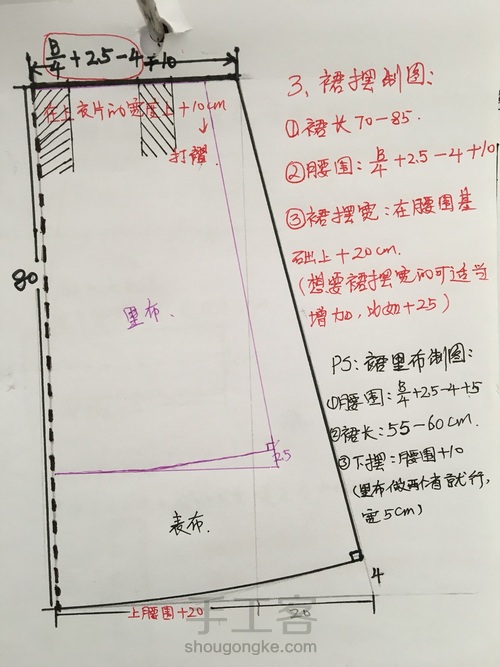 B/4+2.5-4+10
在上衣片的宽度上+10cm
打褶.
80
里布.
2.5
表布.
4
上腰围+20
20
3、裙摆制图:
①裙长70-85.
②腰围:B/4+2.5-4+10
③裙摆宽:在腰围基
础上+20cm.
(想要裙摆宽的可适当
增加,比如+25)
PS:裙里布制图:
①腰围:B/4+2.5-4+5
②裙长:55-60cm.
③下摆:腰围+10
(里布做两个省就行,
宽5cm)
手工客
shougongke.com